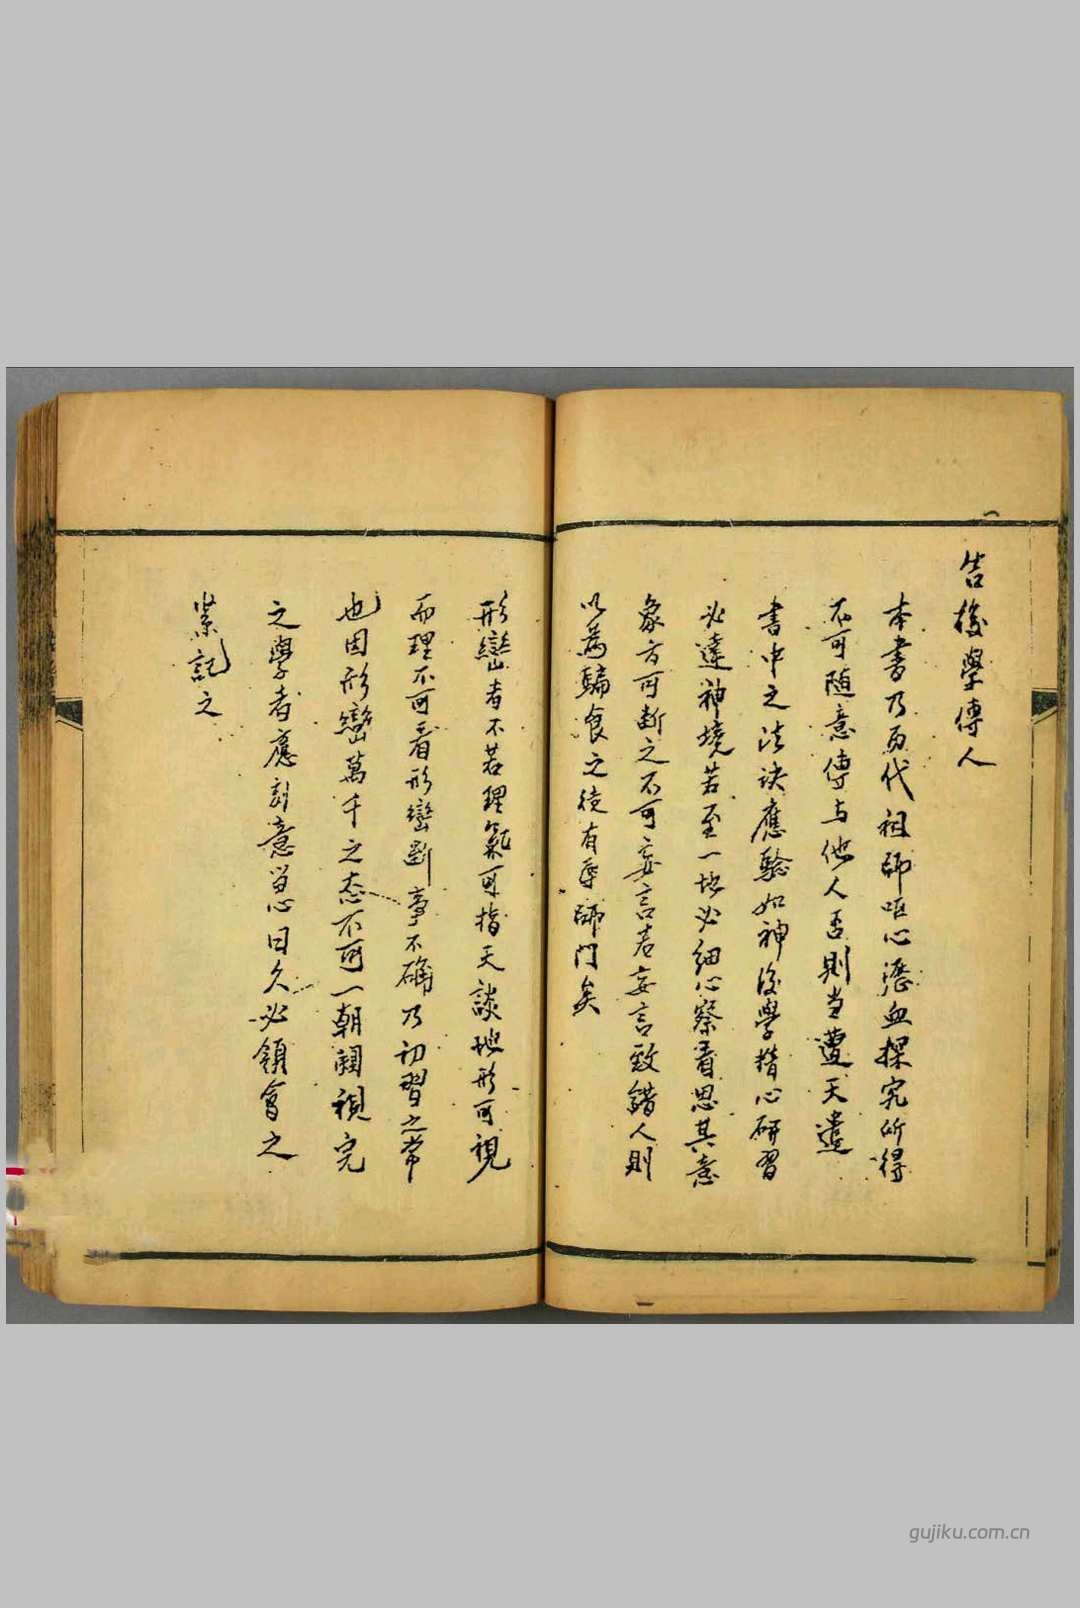 告後學傳人
本書乃历代祖師嘔心瀝血探究所得
不可随意傳与他人否則当遭天遣
書中之法诀應驗如神後學精心研習
必達神境若至一地必细心察看思其意
象方可断之不可妄言若妄言致錯人則
以為騙食之徒有辱師门矣
形巒者不若理氣可指天談地形可視
而理不可看形巒断事不確乃初習之常
也因形巒萬千之态不可一朝闚視完
之學者應刻意留心日久必領會之
紫記之
gujiku.com.cn